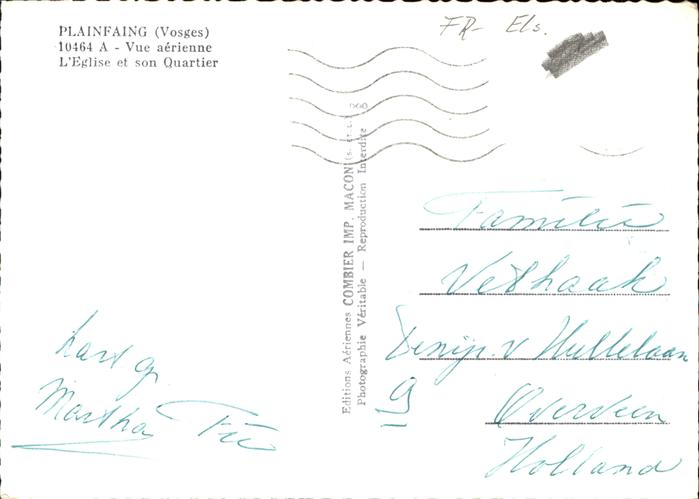 PLAINFAING (Vosges)
10464 A - Vue aérienne
L'Eglise et son Quartier
FR- Els.
Editions Aériennes COMBIER IMP. MACON
Photographie Véritable — Reproduction Interdite
Familie
Vethaak
v
9
Overveen
Holland
Martha